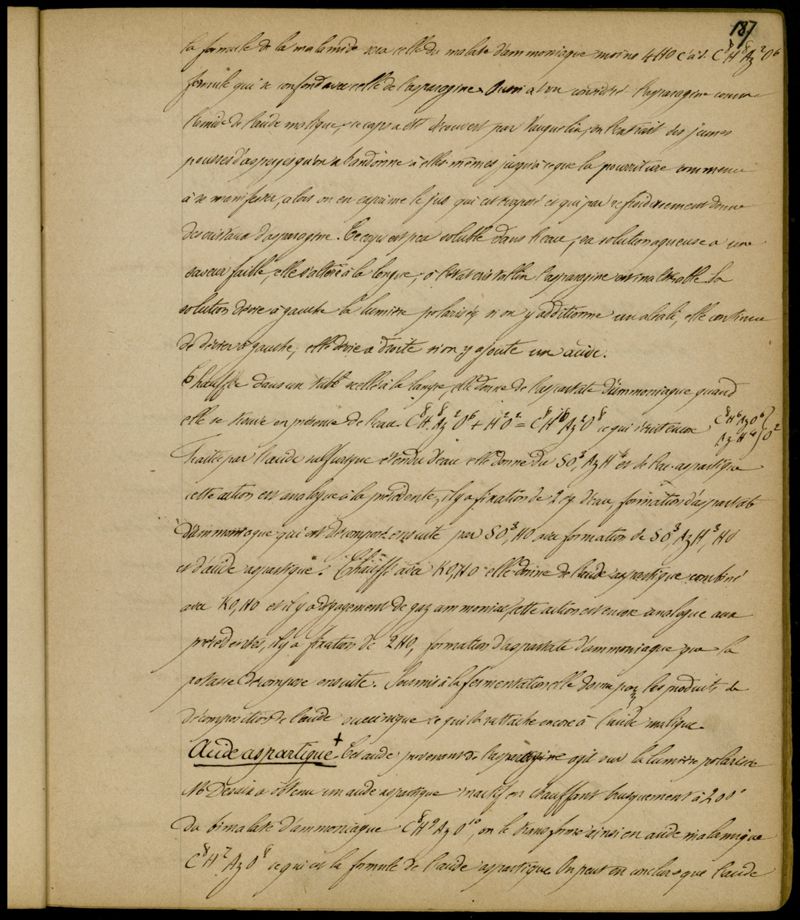 187
la formule de la malamide sera celle du malate d'ammoniaque moins 4HO c'à d. C⁸H⁸Az²O⁶
formule qui se confond avec celle de l'asparagine. Aussi a-t-on considéré l'asparagine comme
l'amide de l'acide malique, ce corps a été découvert par Vauquelin, on l'extrait des jeunes
pousses d'asperges qu'on abandonne à elles mêmes jusqu'à ce que la pourriture commence
à se manifester, alors on en exprime le jus qui est évaporé et qui par refroidissement donne
des cristaux d'asparagine. Ce corps est peu soluble dans l'eau, sa solution aqueuse a une
saveur faible, elle s'altère à la longue, à l'état cristallin l'asparagine est inaltérable. La
solution dévie à gauche la lumière polarisée, si on y additionne un alcali, elle continue
de dévier à gauche, elle dévie à droite si on y ajoute un acide.
Chauffée dans un tube scellé à la lampe, elle donne de l'aspartate d'ammoniaque quand
elle se trouve en présence de l'eau C⁸H⁸Az²O⁶ + H²O² = C⁸H¹⁰Az²O⁸ ce qui C⁸H⁶AzO⁶ } O²
AzH⁴
Traitée par l'acide sulfurique étendu d'eau elle donne du SO³,AzH⁴ et de l'ac. aspartique
cette action est analogue à la précédente, il y a fixation de 2 éq d'eau, formation d'aspartate
d'ammoniaque qui est décomposé ensuite par SO³,HO avec formation de SO³,AzH³,HO
et d'acide aspartique. Chauffée avec KO,HO elle donne de l'acide aspartique combiné
avec KO,HO et il y a dégagement de gaz ammoniac, cette action est encore analogue aux
précédentes, il y a fixation de 2HO, formation d'aspartate d'ammoniaque que la
potasse décompose ensuite. Soumise à la fermentation elle donne les produits de
décomposition de l'acide succinique ce qui la rattache encore à l'acide malique.
Acide aspartique + Cet acide provenant de l'asparagine agit sur la lumière polarisée
Mr Dessaignes a obtenu un acide aspartique inactif en chauffant brusquement à 200°
du bimalate d'ammoniaque C⁸H⁹AzO¹⁰, on le transforme ainsi en acide malamique
C⁸H⁷AzO⁸ ce qui est la formule de l'acide aspartique. On peut en conclure que l'acide